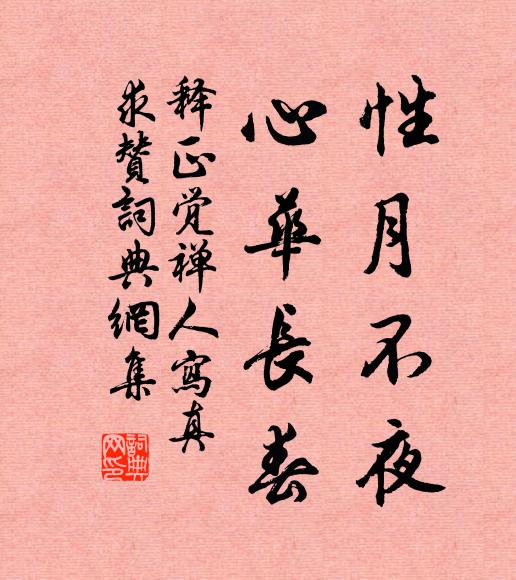 性月不夜
心華長春
释正觉禅人寫真
求贊詞典網集
詞典
网印